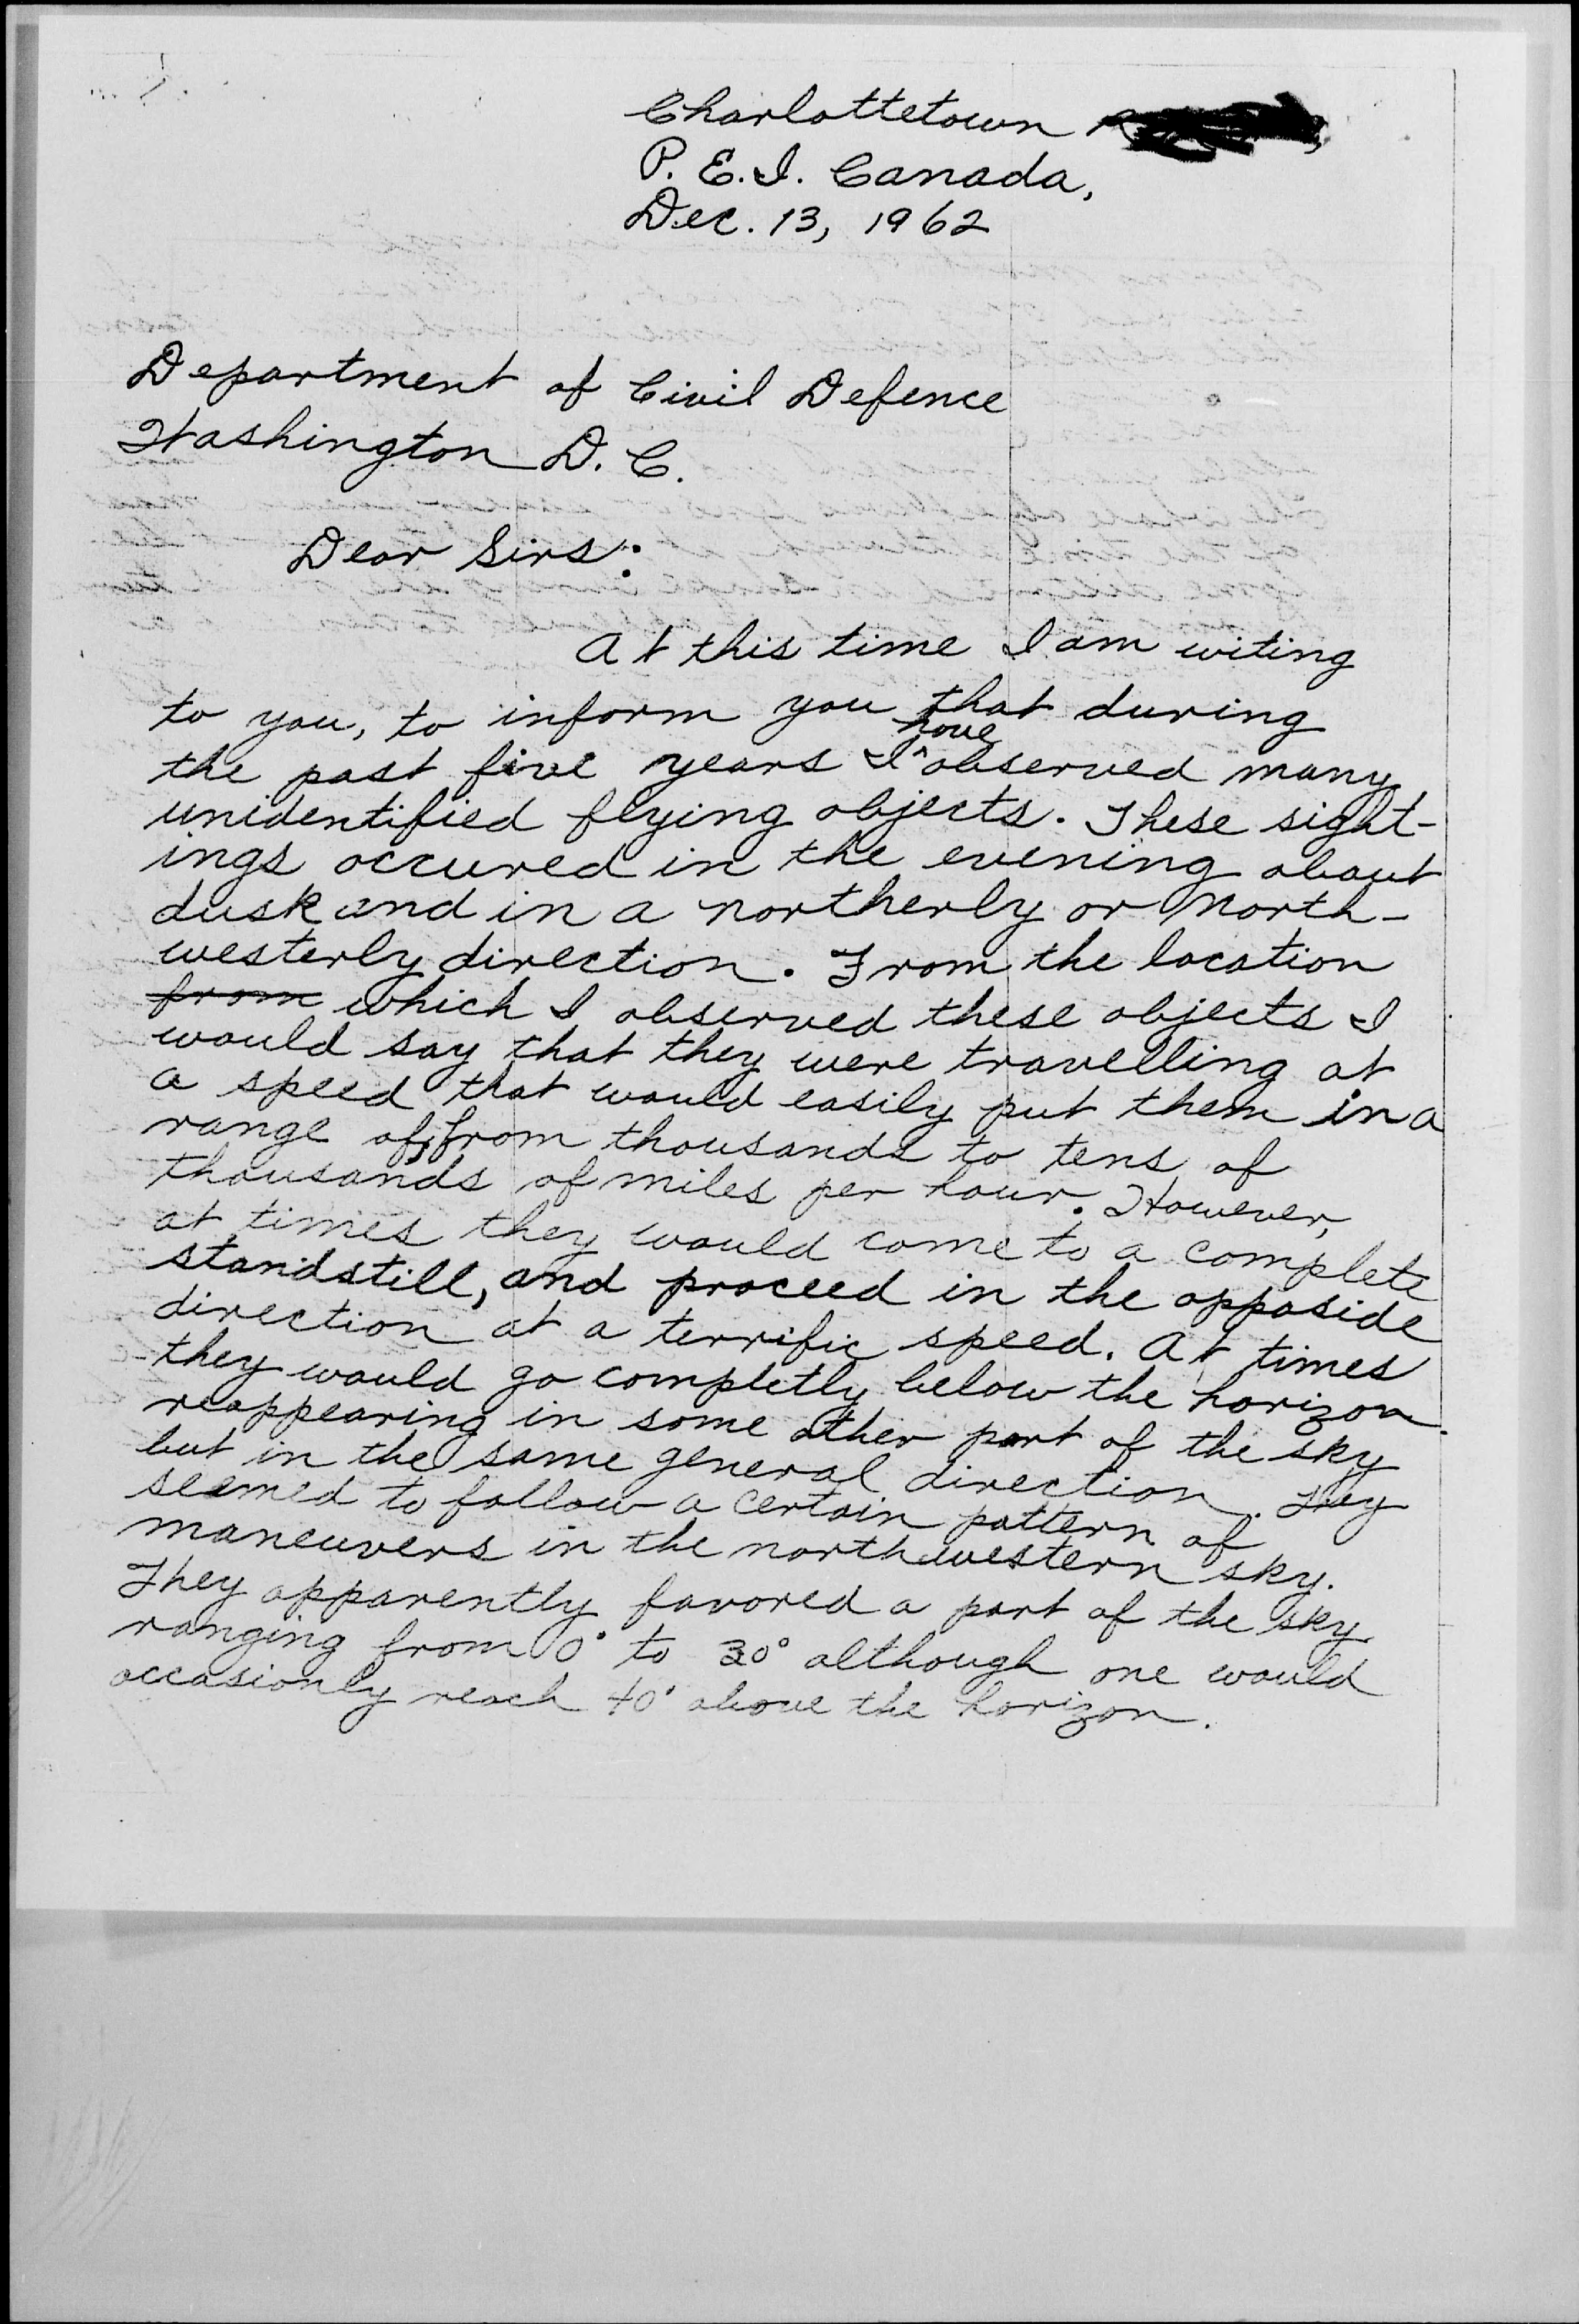 Charlottetown R
P. E. I. Canada,
Dec. 13, 1962
Department of Civil Defence
Washington D. C.
Dear Sirs:
At this time I am witing
to you, to inform you that during
the past five years I have observed many
unidentified flying objects. These sight-
ings occured in the evening about
dusk and in a northerly or North-
westerly direction. From the location
from which I observed these objects I
would say that they were travelling at
a speed that would easily put them in a
range of, from thousands to tens of
thousands of miles per hour. However,
at times they would come to a complete
standstill, and proceed in the opposide
direction at a terrific speed. At times
they would go completly below the horizon
reappearing in some other part of the sky
but in the same general direction. They
seemed to follow a certain pattern of
maneuvers in the northwestern sky.
They apparently favored a part of the sky
ranging from 0° to 30° although one would
occasionly reach 40° above the horizon.